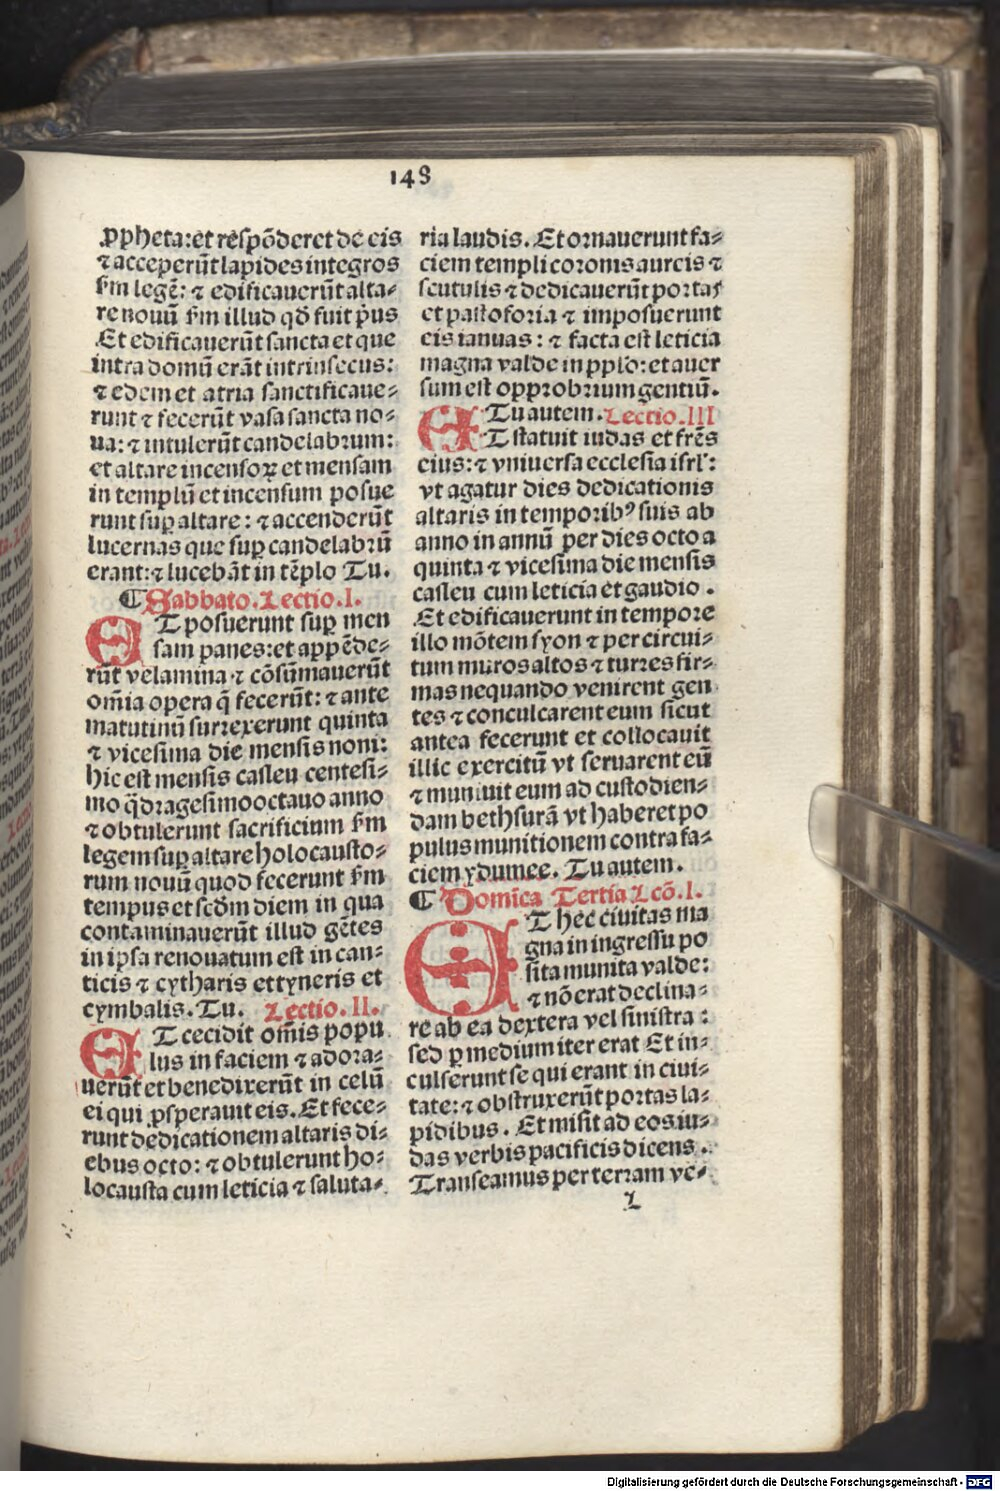 148
ꝓpheta:et respōderet de eis
⁊ acceperūt lapides integros
ẜm legē: ⁊ edificauerūt alta⸗
re nouū ẜm illud qđ fuit pͥus
Et edificauerūt sancta et que
intra domū erāt intrinsecus:
⁊ edem et atria sanctificaue⸗
runt ⁊ fecerūt vasa sancta no⸗
ua: ⁊ intulerūt candelabrum:
et altare incensoꝝ et mensam
in templū et incensum posue
runt suꝑ altare: ⁊ accenderūt
lucernas que suꝑ candelabrū
erant: ⁊ lucebāt in tēplo Tu.
¶ Sabbato. Lectio. I.
ET posuerunt suꝑ men
sam panes: et appēde⸗
rūt velamina ⁊ cōsūmauerūt
om̄ia opera q̄ fecerūt: ⁊ ante
matutinū surrexerunt quinta
⁊ vicesima die mensis noni:
hic est mensis casleu centesi⸗
mo q̈dragesimooctauo anno
⁊ obtulerunt sacrificium ẜm
legem suꝑ altare holocausto⸗
rum nouū quod fecerunt ẜm
tempus et scd̄m diem in qua
contaminauerūt illud gētes
in ipsa renouatum est in can⸗
ticis ⁊ cytharis et tyneris et
cymbalis. Tu. Lectio. II.
ET cecidit om̄is popu
lus in faciem ⁊ adora⸗
uerūt et benedixerūt in celū
ei qui ꝓsperauit eis. Et fece⸗
runt dedicationem altaris di⸗
ebus octo: ⁊ obtulerunt ho⸗
locausta cum leticia ⁊ saluta⸗
ria laudis. Et ornauerunt fa⸗
ciem templi coronis aureis ⁊
scutulis ⁊ dedicauerūt portas
et pastoforia ⁊ imposuerunt
eis ianuas: ⁊ facta est leticia
magna valde in pplo: et auer
sum est opprobrium gentiū.
Tu autem. Lectio. III
ET statuit iudas et frēs
eius: ⁊ vniuersa ecclesia isrl':
vt agatur dies dedicationis
altaris in temporibꝰ suis ab
anno in annū per dies octo a
quinta ⁊ vicesima die mensis
casleu cum leticia et gaudio.
Et edificauerunt in tempore
illo mōtem syon ⁊ per circui⸗
tum muros altos ⁊ turres fir⸗
mas nequando venirent gen
tes ⁊ conculcarent eum sicut
antea fecerunt et collocauit
illic exercitū vt seruarent eū
⁊ muniuit eum ad custodien⸗
dam bethsurā vt haberet po
pulus munitionem contra fa⸗
ciem ydumee. Tu autem.
¶ Domīca Tertia Lcō. I.
ET hec ciuitas ma
gna in ingressu po
sita munita valde:
⁊ nō erat declina⸗
re ab ea dextera vel sinistra:
sed ꝑ medium iter erat Et in⸗
culserunt se qui erant in ciui⸗
tate: ⁊ obstruxerūt portas la⸗
pidibus. Et misit ad eos iu⸗
das verbis pacificis dicens.
Transeamus per terram ve⸗
L
Digitalisierung gefördert durch die Deutsche Forschungsgemeinschaft - DFG